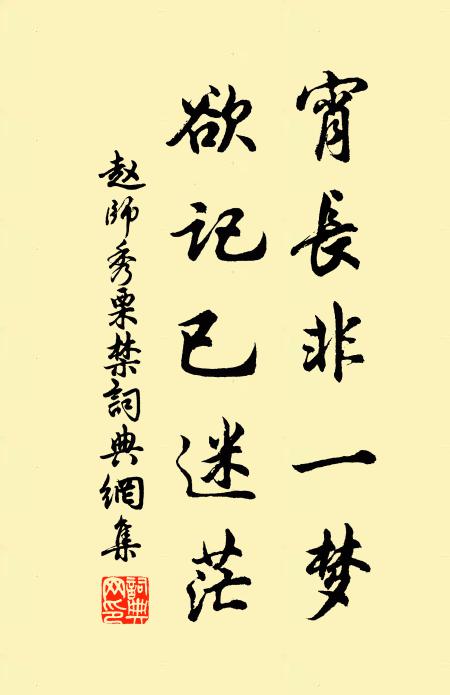 宵長非一梦
欲记已迷茫
赵師秀栗禁詞典網集
詞典网印